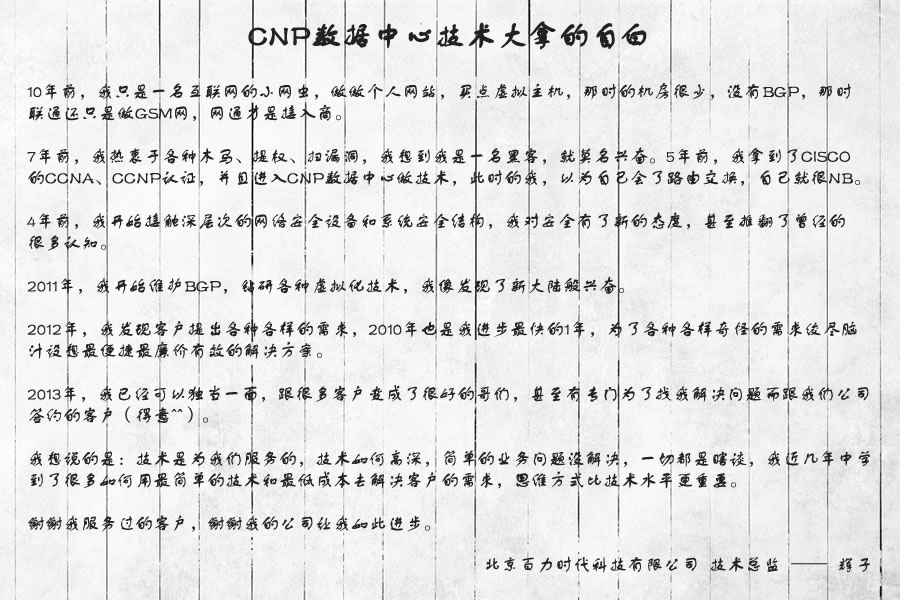 CNP数据中心技术大拿的自白
10年前，我只是一名互联网的小网虫，做做个人网站，买点虚拟主机，那时的机房很少，没有BGP，那时
联通还只是做GSM网，网通才是接入商。
7年前，我热衷于各种木马、提权、扫漏洞，我想到我是一名黑客，就莫名兴奋。5年前，我拿到了CISCO
的CCNA、CCNP认证，并且进入CNP数据中心做技术，此时的我，以为自己会了路由交换，自己就很NB。
4年前，我开始接触深层次的网络安全设备和系统安全结构，我对安全有了新的态度，甚至推翻了曾经的
很多认知。
2011年，我开始维护BGP，钻研各种虚拟化技术，我像发现了新大陆般兴奋。
2012年，我发现客户提出各种各样的需求，2010年也是我进步最快的1年，为了各种各样奇怪的需求绞尽脑
汁设想最便捷最廉价有效的解决方案。
2013年，我已经可以独当一面，跟很多客户变成了很好的哥们，甚至有专门为了找我解决问题而跟我们公司
签约的客户（得意^^）。
我想说的是：技术是为我们服务的，技术如何高深，简单的业务问题没解决，一切都是瞎谈，我近几年中学
到了很多如何用最简单的技术和最低成本去解决客户的需求，思维方式比技术水平更重要。
谢谢我服务过的客户，谢谢我的公司让我如此进步。
北京百力时代科技有限公司 技术总监 —— 辉子